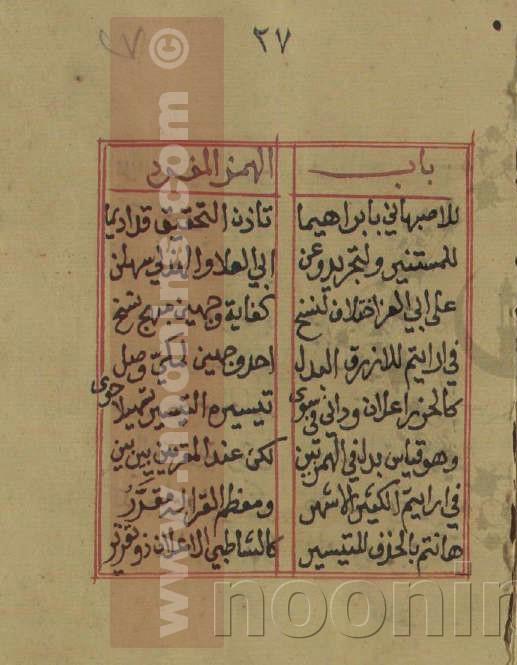 ٢٧
باب الهمز المفرد
للاصبهاني بابراهيما تاذن التحقيق قد اديما
للمستنير ولتجريد وعن ابي العلا والهذلي سهلن
على ابي العز اختلاف لنسخ كفاية وجهين منهج نسخ
في ارايتم للازرق العدل احد وجهين لمكي وصل
كالحزر اعلان وداني في سوى تيسيره التيسير تسهيلا حوى
وهو قياس بدل في الهمزتين لكن عند المقربين بين
في ارايتم الكثير الاشهر ومعظم القرا له مقرر
هانتم بالحذف للتيسير كالشاطبي الاعلان ذو تقرير
www.noonin.com ©
noonin